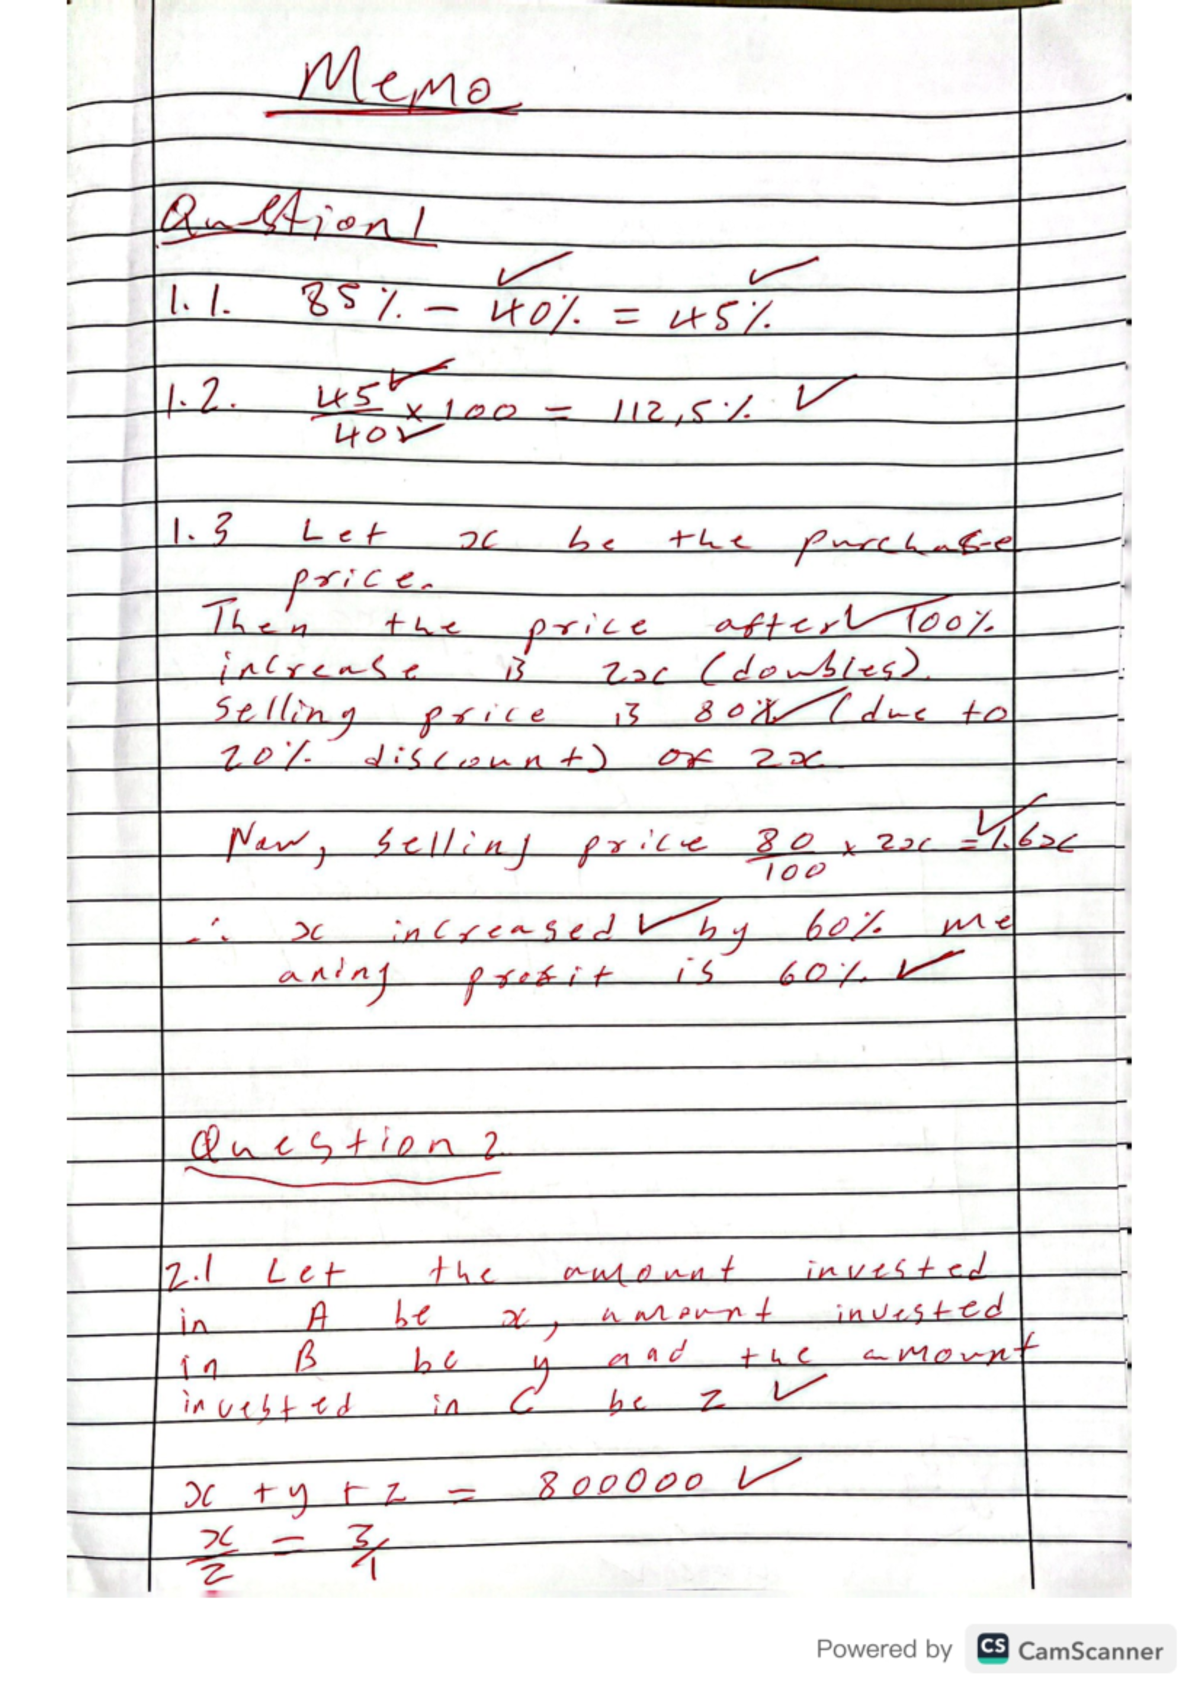 Memo
Question 1
1.1. 85% - 40% = 45%
1.2. 45/40 × 100 = 112,5%
1.3 Let x be the purchase
price.
Then the price after 100%
increase is 2x (doubles).
Selling price is 80% (due to
20% discount) of 2x
Now, selling price 80/100 × 2x = 1.6x
∴ x increased by 60% me
aning profit is 60%
Question 2
2.1 Let the amount invested
in A be x, amount invested
in B be y and the amount
invested in C be z
x + y + z = 800000
x/z = 3/1
Powered by CS CamScanner